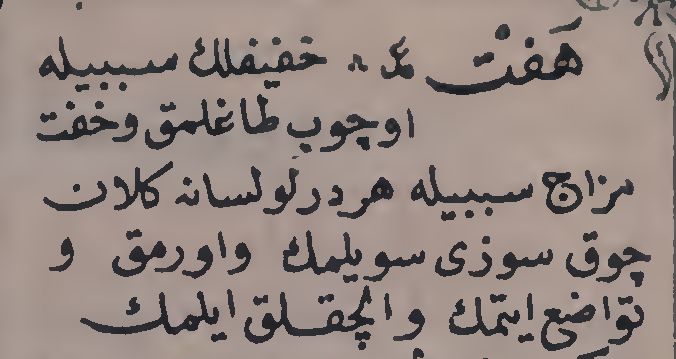 هَفْتْ عر خفيفلك سببيله
اوچوب طاغلمق وخفت
مزاج سببيله هر در لولسانه كلان
چوق سوزى سويلمك واورمق و
تواضع ايتمك والچقلق ايلمك